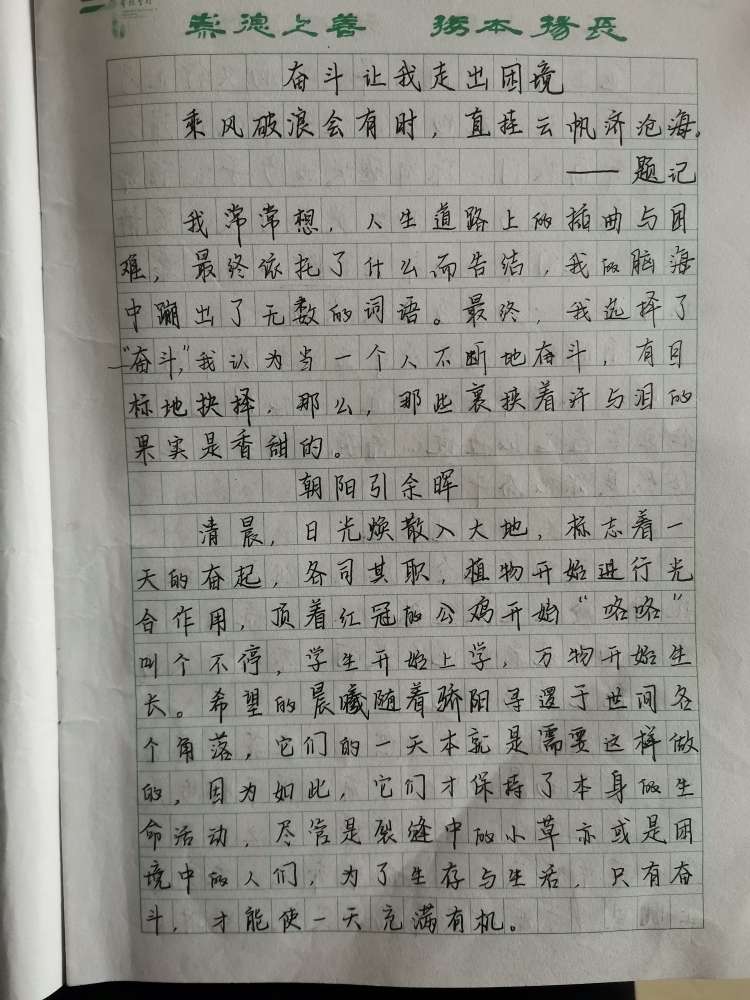 崇德上善 务本扬长
奋斗让我走出困境
乘风破浪会有时，直挂云帆济沧海。
——题记
我常常想，人生道路上的插曲与困
难，最终依托了什么而告结，我的脑海
中蹦出了无数的词语。最终，我选择了
“奋斗，”我认为当一个人不断地奋斗，有目
标地抉择，那么，那些裹挟着汗与泪的
果实是香甜的。
朝阳引余晖
清晨，日光焕散入大地，标志着一
天的奋起，各司其职，植物开始进行光
合作用，顶着红冠的公鸡开始“咯咯”
叫个不停，学生开始上学，万物开始生
长。希望的晨曦随着骄阳寻逻于世间各
个角落，它们的一天本就是需要这样做
的，因为如此，它们才保持了本身的生
命活动，尽管是裂缝中的小草亦或是困
境中的人们，为了生存与生活，只有奋
斗，才能使一天充满有机。